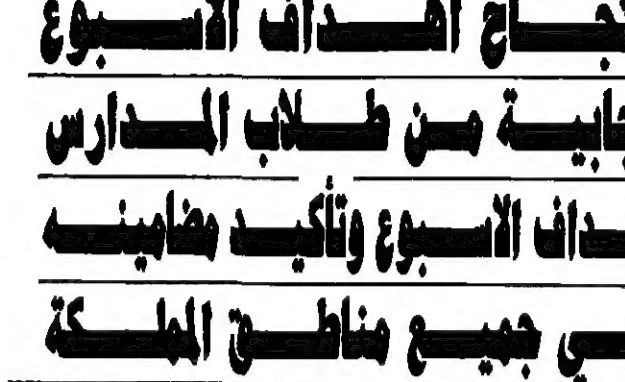 أهداف الاسبوع
من طلاب المدارس
الاسبوع وتأكيد مضامينه
جميع مناطق المملكة